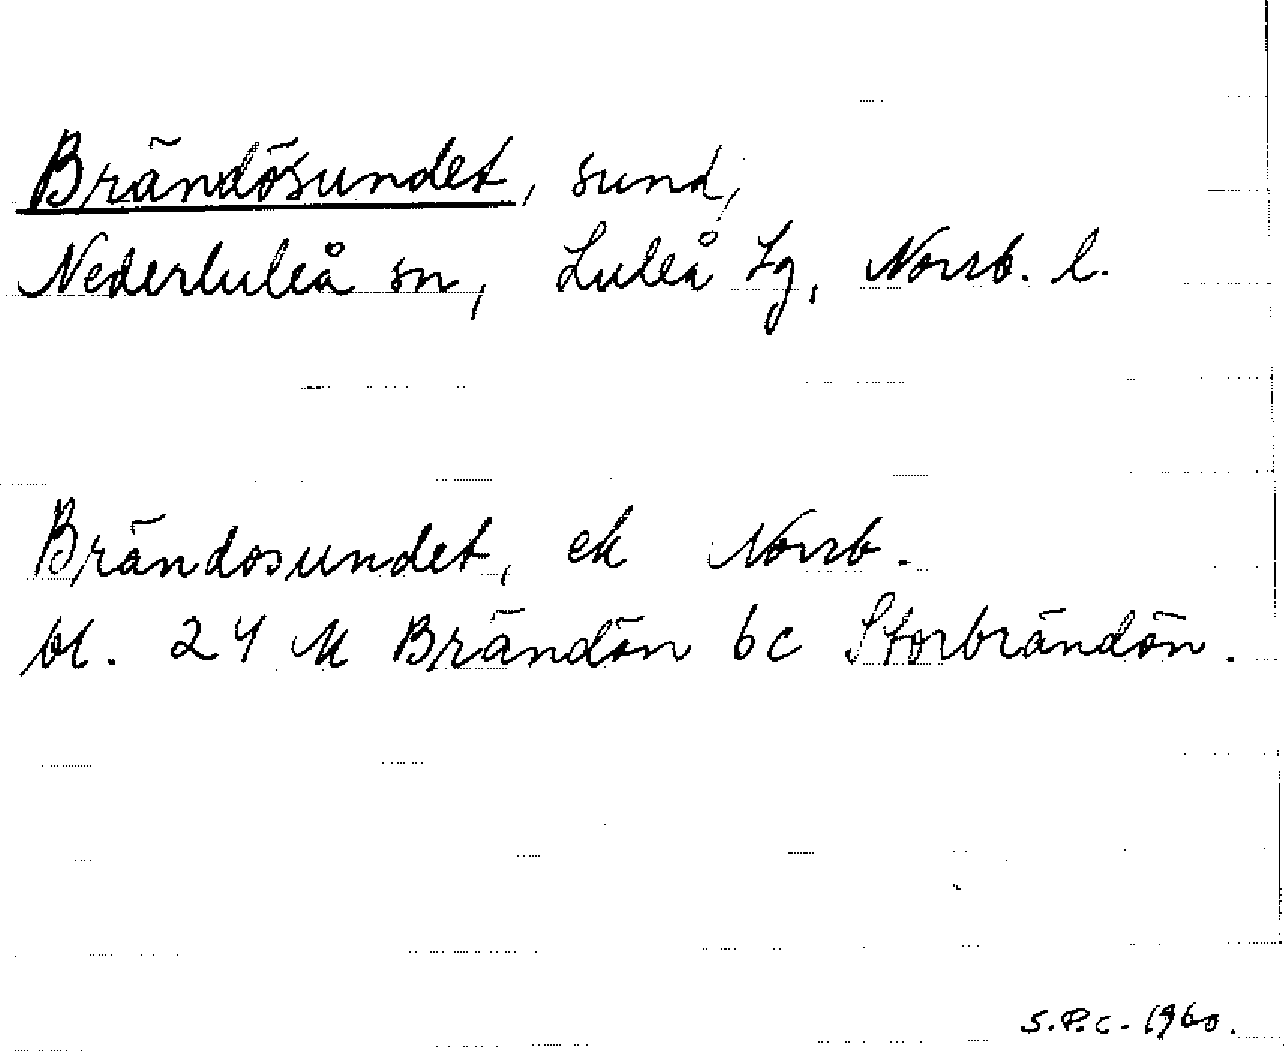 Brändösundet, sund,
Nederluleå sn, Luleå tg, Norrb. l.
Brändosundet, ek Norrb.
bl. 24 M Brändön 6c Storbrändön.
S.P.C. 1960.